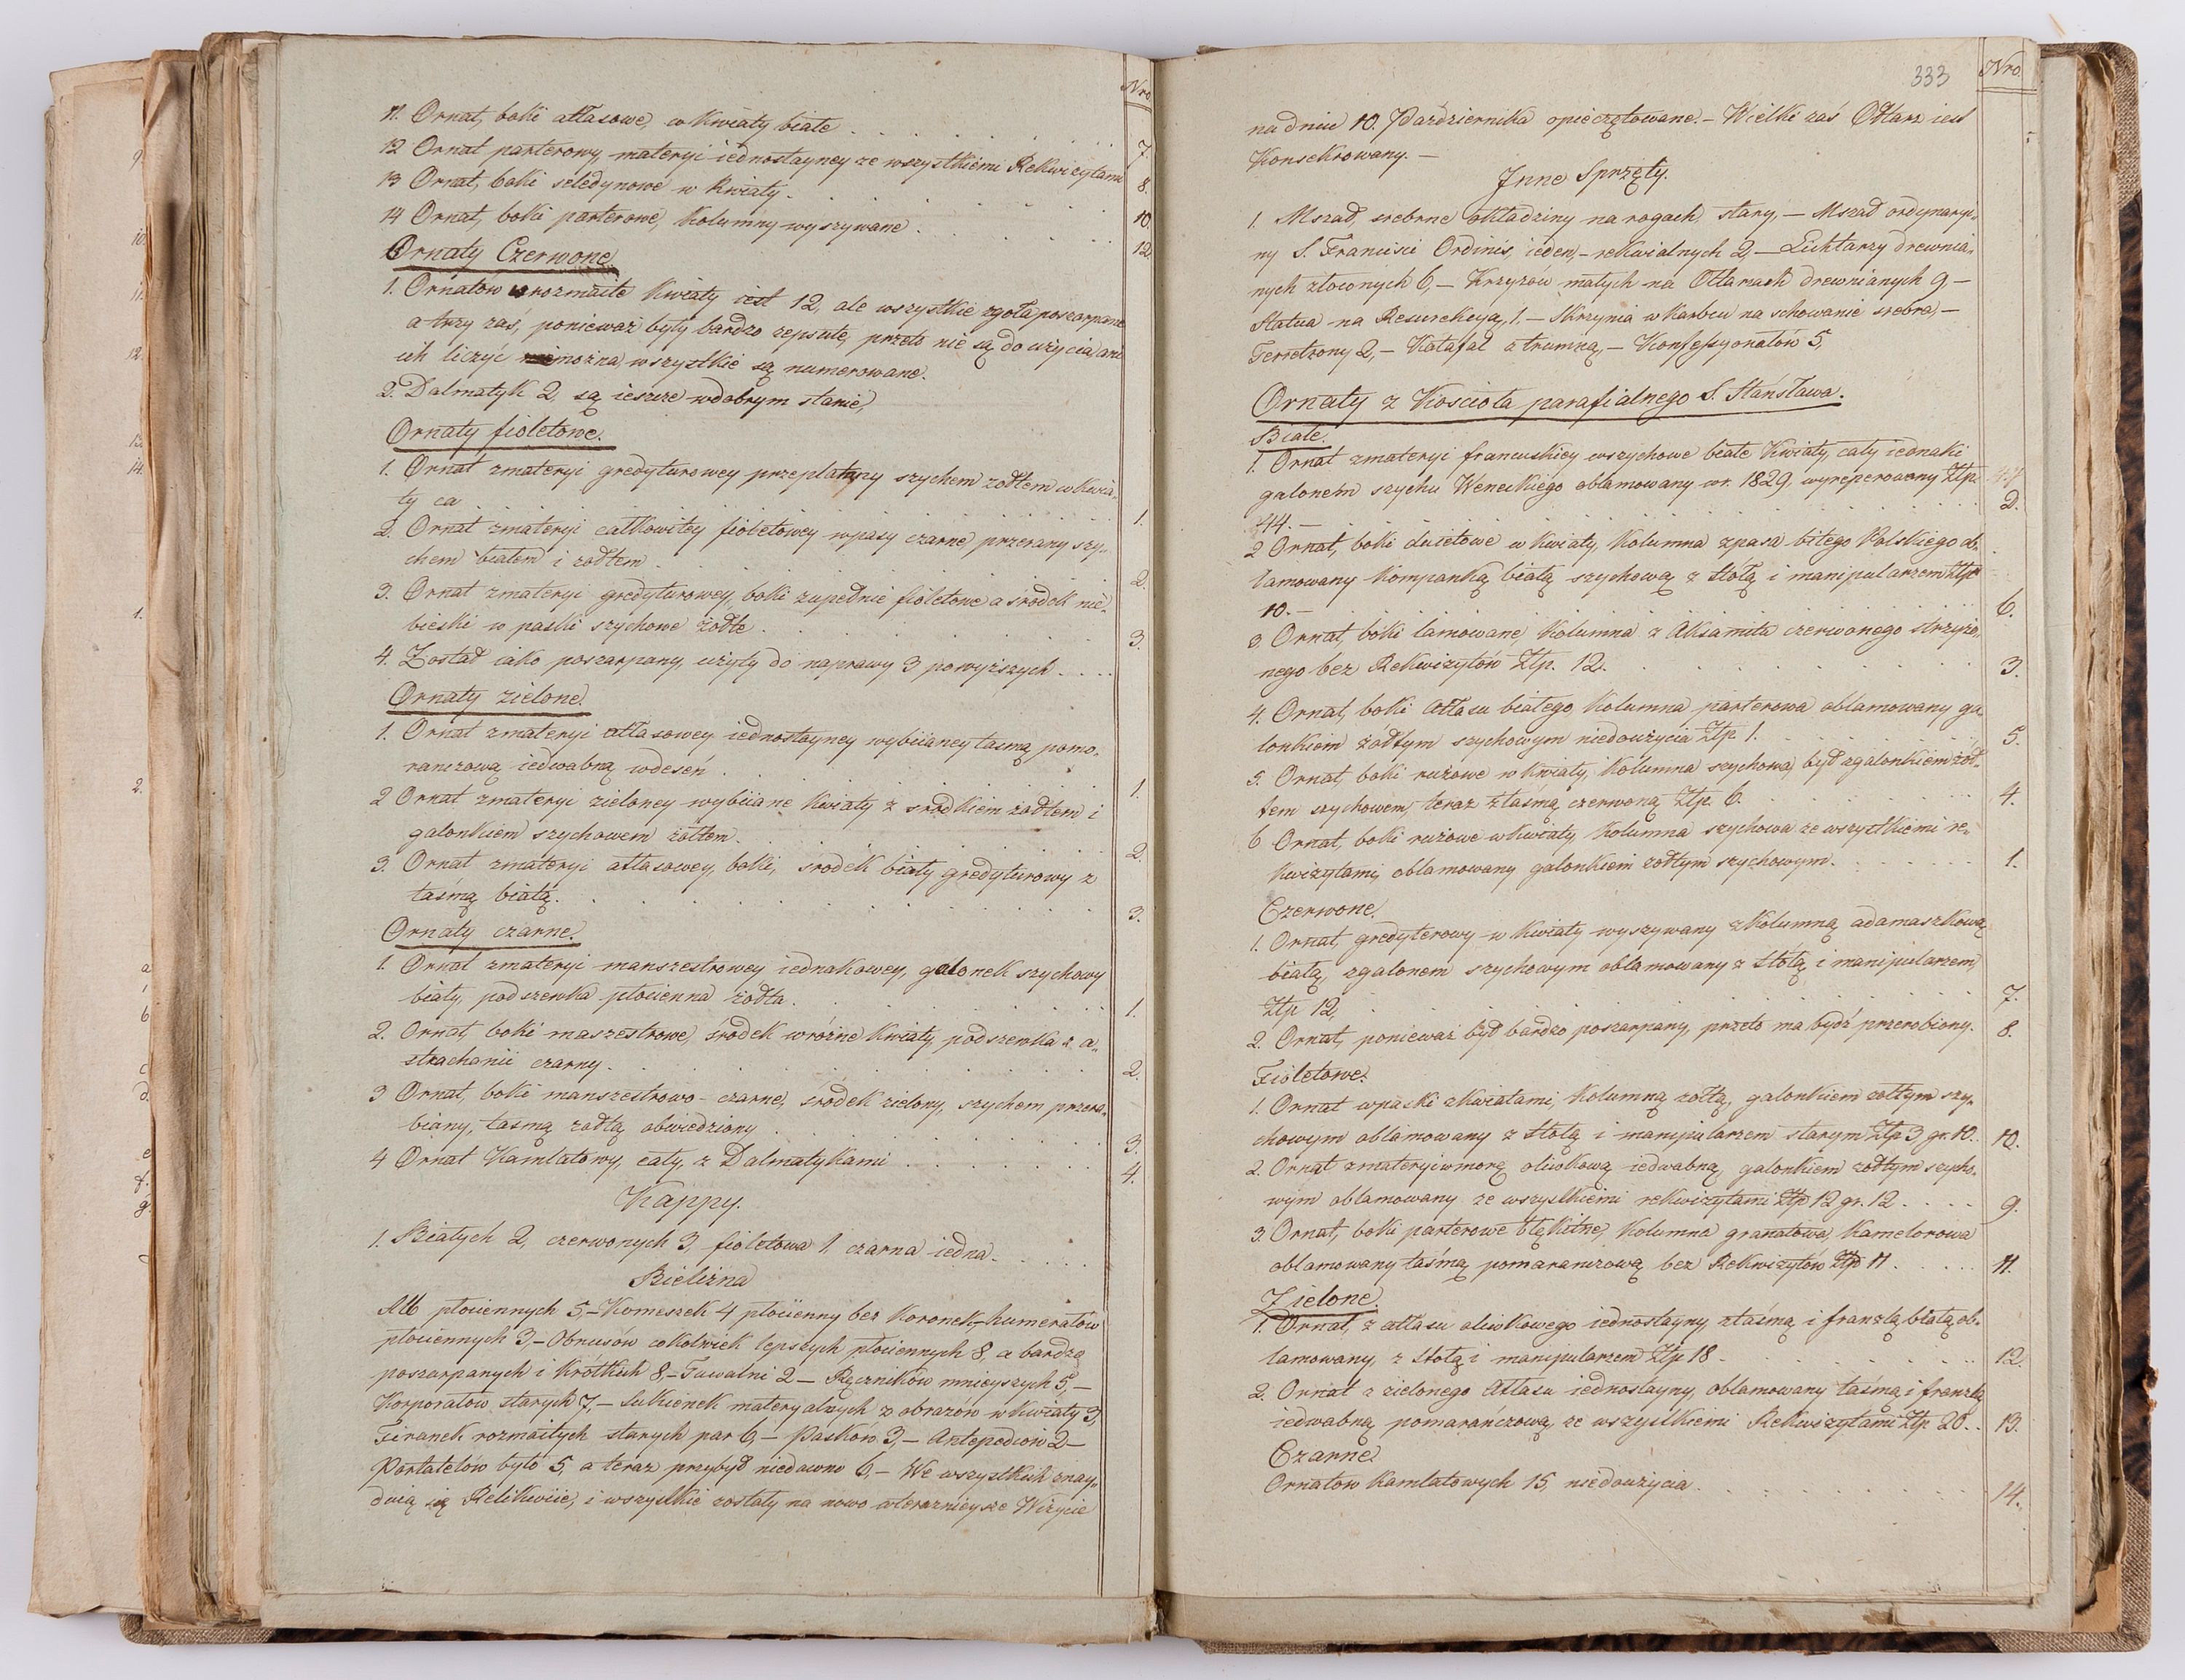 Nro
11. Ornat, boki atłasowe, w kwiaty białe . . . . . . 7.
12 Ornat parterowy, materyi iednostayney ze wszystkiemi Rekwizytami 8.
13 Ornat, boki seledynowe w kwiaty . . . . . . 10.
14 Ornat, boki parterowe, Kolumny wyszywane . . . . . . 12.
Ornaty Czerwone.
1. Ornatów w rozmaite kwiaty iest 12, ale wszystkie zgoła poszarpane
a trzy zaś, ponieważ były bardzo zepsute, przeto nie są do użycia, ani
ich liczyć można, wszystkie są numerowane.
2. Dalmatyk 2, są ieszcze w dobrym stanie,
Ornaty fioletowe.
1. Ornat z materyi gredyturowey przeplatany szychem żółtem w kwia-
ty ca . . . . . . 1.
2. Ornat z materyi całkowitey fioletowey w pasy czarne, przerany szy-
chem białem i żółtem . . . . . . 2.
3. Ornat z materyi gredyturowey, boki zupełnie fioletowe a środek nie-
bieski w paski szychowe żółte . . . . . . 3.
4. Został iako poszarpany, użyty do naprawy 3 powyższych . . . .
Ornaty zielone.
1. Ornat z materyi atłasowey iednostayney wybiianey taśmą pomo-
ranczową iedwabną w deseń . . . . . . 1.
2 Ornat z materyi zieloney wybiiane kwiaty z środkiem żółtem i
galonkiem szychowem żółtem . . . . . . 2.
3. Ornat z materyi atłasowey, boki, środek biały gredyturowy z
taśmą białą . . . . . . 3.
Ornaty czarne.
1. Ornat z materyi manszestrowey iednakowey, galonek szychowy
biały, podszewka płócienna żółta . . . . . . 1.
2. Ornat, boki maszestrowe, środek w różne kwiaty, podszewka z a-
strachanii czarny . . . . . . 2.
3 Ornat, boki manszestrowo-czarne, środek zielony, szychem przera-
biany, taśmą żółtą obwiedziony . . . . . . 3.
4 Ornat Kamlatowy, cały, z Dalmatykami . . . . . . 4.
Kappy.
1. Białych 2, czerwonych 3, fioletowa 1. czarna iedna . . . . .
Bielizna
Alb płóciennych 5, – Komeszek 4 płócienny bez Koronek, – humerałów
płóciennych 3, – Obrusów cokolwiek lepszych płóciennych 8, a bardzo
poszarpanych i krótkich 8 – Tuwalni 2 – Ręczników mnieyszych 5, –
Korporałów starych 7, – Sukienek materyalnych z obrazów w kwiaty 3,
Firanek rozmaitych starych par 6, – Pasków 3, – Antepedion 2 –
Portatelów było 5, a teraz przybył niedawno 6, – We wszystkich znay-
duią się Relikwiie, i wszystkie zostały na nowo w teraznieysze Wizycie
333
Nro
na dniu 10. Października opieczętowane. – Wielki zaś Ołtarz iest
Konsekrowany. –
Inne Sprzęty.
1. Mszał, srebrne okładziny na rogach, stary, – Mszał ordynaryi-
ny S. Francisci Ordinis, ieden, – rekwialnych 2, – Lichtarzy drewnia-
nych złoconych 6, – Krzyżów małych na Ołtarzach drewnianych 9, –
Statua na Resurekcyą, 1. – Skrzynia w karbcu na schowanie srebra, –
Ferretrony 2, – Katafal z trumną, – Konfessyonałów 5,
Ornaty z Kościoła parafialnego S. Stanisława.
Białe.
1. Ornat z materyi francuskiey w szychowe białe kwiaty, cały iednaki
galonem szychu Weneckiego oblamowany w r. 1829. wyreperowany Złp.
44. – . . . . . . 2.
2 Ornat, boki lucetowe w kwiaty, Kolumna z pasa litego Polskiego ob-
lamowany kompanką białą szychową z stółą i manipularzem Złp.
10. – . . . . . . 6.
3. Ornat, boki lamowane, Kolumna z Aksamitu czerwonego strzyżo-
nego bez Rekwizytów Złp. 12. . . . . . 3.
4. Ornat, boki Atłasu białego, Kolumna parterowa oblamowany ga-
lonkiem żółtym szychowym niedoużycia Złp. 1. . . . . . 5.
5. Ornat, boki różowe w kwiaty, Kolumna szychową, był z galonkiem żół-
tem szychowem, teraz z taśmą czerwoną Złp. 6. . . . . . 4.
6 Ornat, boki różowe w kwiaty, Kolumna szychowa ze wszystkiemi re-
kwizytami, oblamowany galonkiem żółtym szychowym . . . . . . 1.
Czerwone.
1. Ornat, gredyterowy w kwiaty wyszywany z Kolumną adamaszkową
białą, z galonem szychowym oblamowany z stółą i manipularzem,
Złp. 12, . . . . . . 7.
2. Ornat, ponieważ był bardzo poszarpany, przeto ma bydź przerobiony. 8.
Fioletowe.
1. Ornat w paski z kwiatami, Kolumną żółtą, galonkiem żółtym szy-
chowym oblamowany z stółą i manipularzem starym Złp. 3, gr. 10. . 10.
2. Ornat z materyi w morę oliwkową iedwabną, galonkiem żółtym szycho-
wym oblamowany ze wszystkiemi rekwizytami Złp 12 gr. 12 . . . . 9.
3. Ornat, boki parterowe błękitne, Kolumna granatowa, Kamelorowa
oblamowany taśmą pomaranczową bez Rekwizytów Złp 11 . . . . . 11.
Zielone.
1. Ornat, z atłasu oliwkowego iednostayny z taśmą i franzlą białą ob-
lamowany, z stółą i manipularzem Złp 18 . . . . . . 12.
2. Ornat z zielonego Atłasu iednostayny, oblamowany taśmą i franzlą
iedwabną pomarańczową ze wszystkiemi Rekwizytami Złp. 20. . 13.
Czarne.
Ornatow kamlatowych 15, niedoużycia . . . . . . 14.